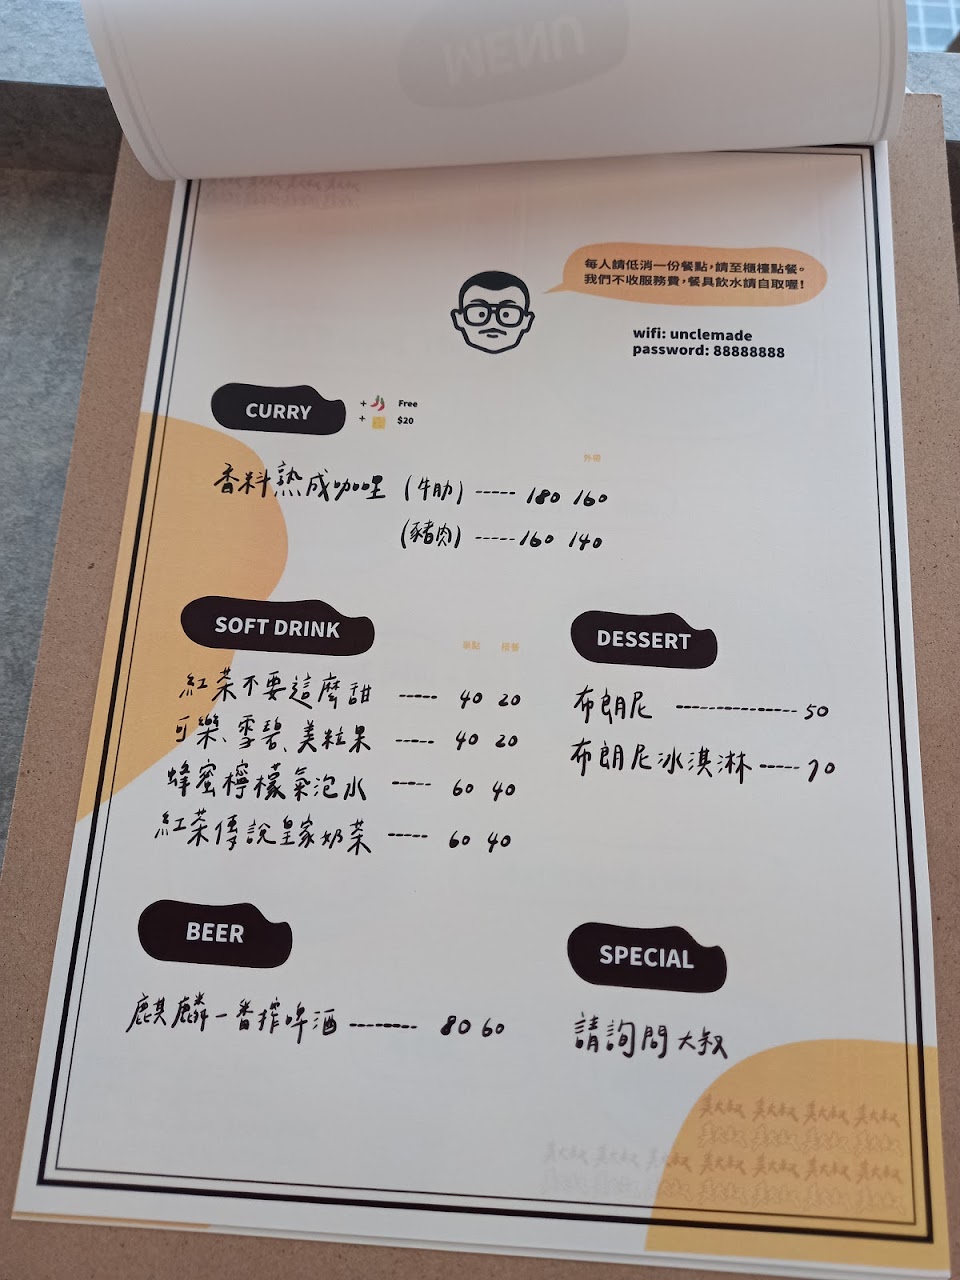 MENU
每人請低消一份餐點,請至櫃檯點餐。
我們不收服務費,餐具飲水請自取喔!
wifi: unclemade
password: 88888888
CURRY
+ Free
+ $20
外帶
香料熟成咖哩 (牛肋) ----- 180 160
(豬肉) ----- 160 140
SOFT DRINK
單點 搭餐
紅茶不要這麼甜 ----- 40 20
可樂、雪碧、美粒果 ----- 40 20
蜂蜜檸檬氣泡水 ----- 60 40
紅茶傳說皇家奶茶 ----- 60 40
DESSERT
布朗尼 --------------- 50
布朗尼冰淇淋 ----- 70
BEER
麒麟一番搾啤酒 -------- 80 60
SPECIAL
請詢問大叔